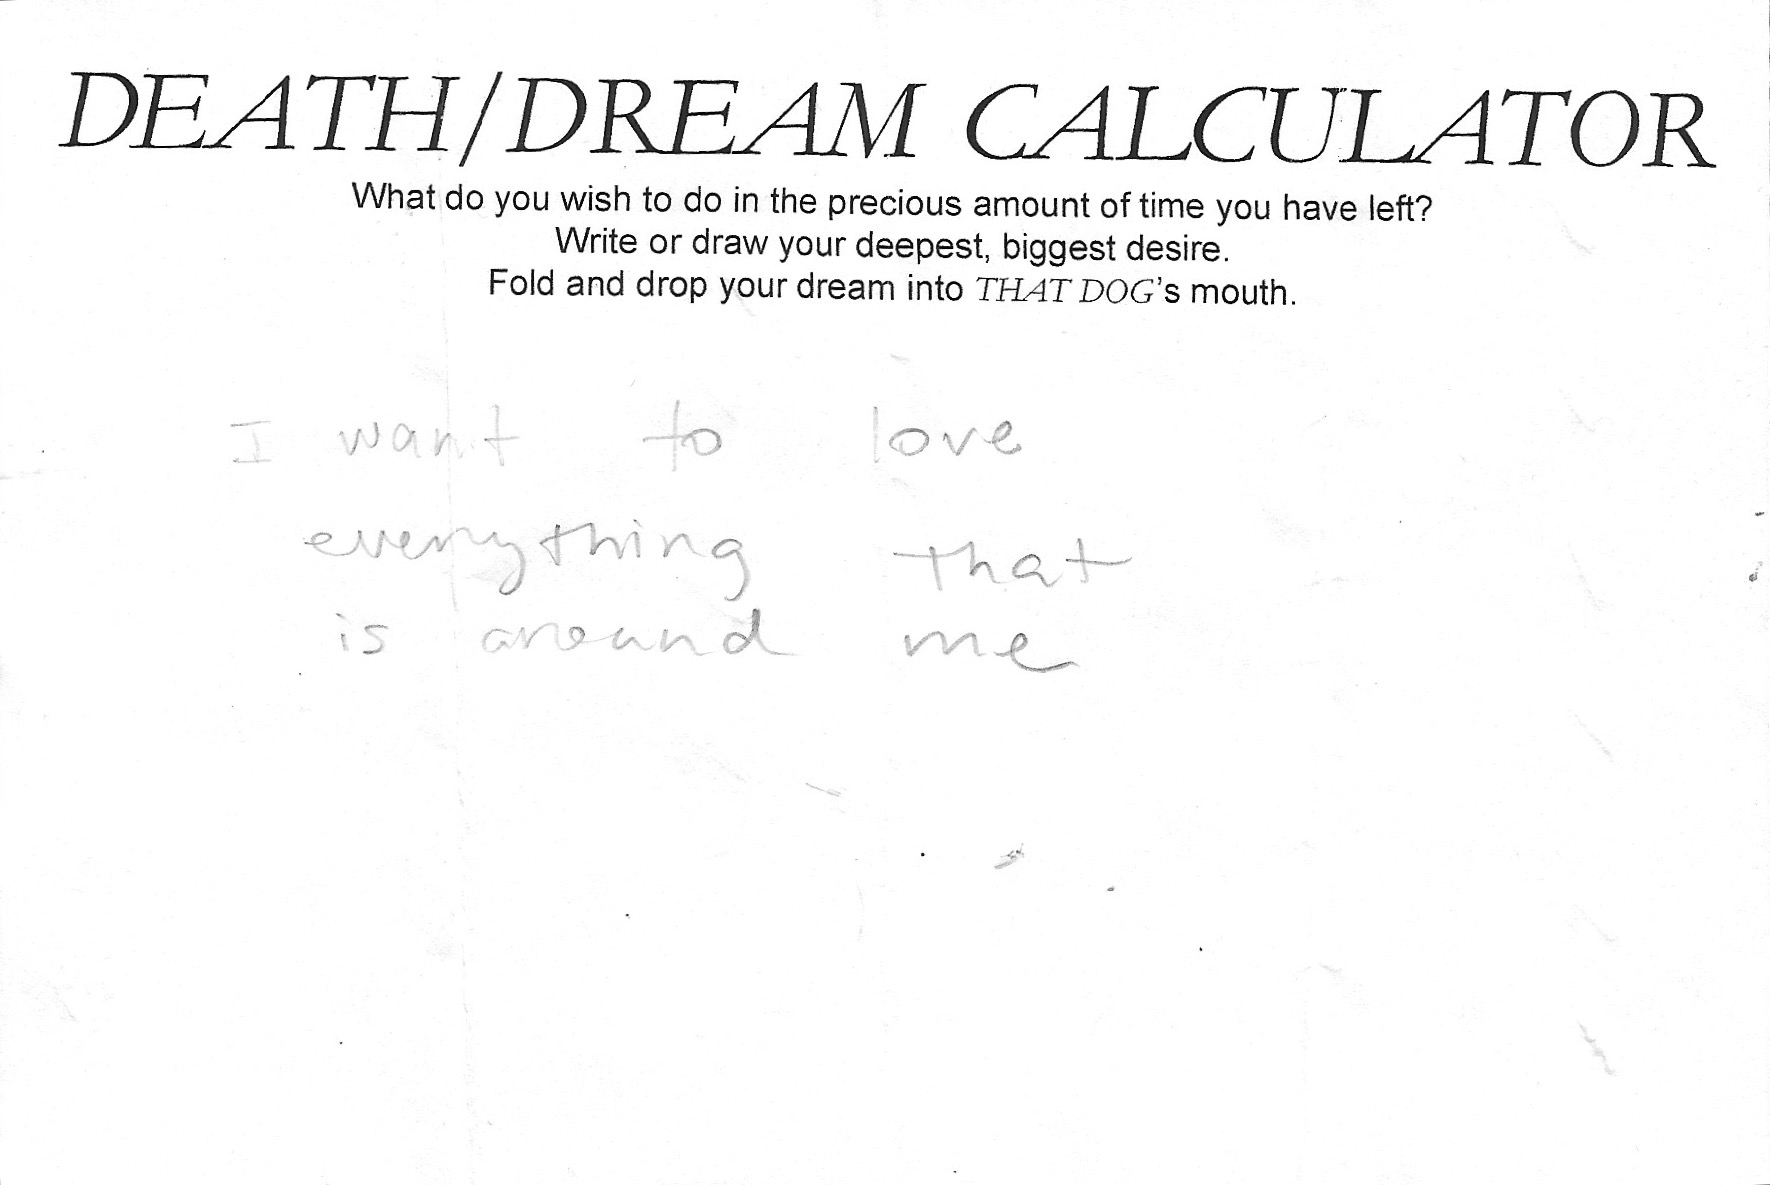 DEATH/DREAM CALCULATOR
What do you wish to do in the precious amount of time you have left?
Write or draw your deepest, biggest desire.
Fold and drop your dream into THAT DOG's mouth.
I want to love
everything that
is around me